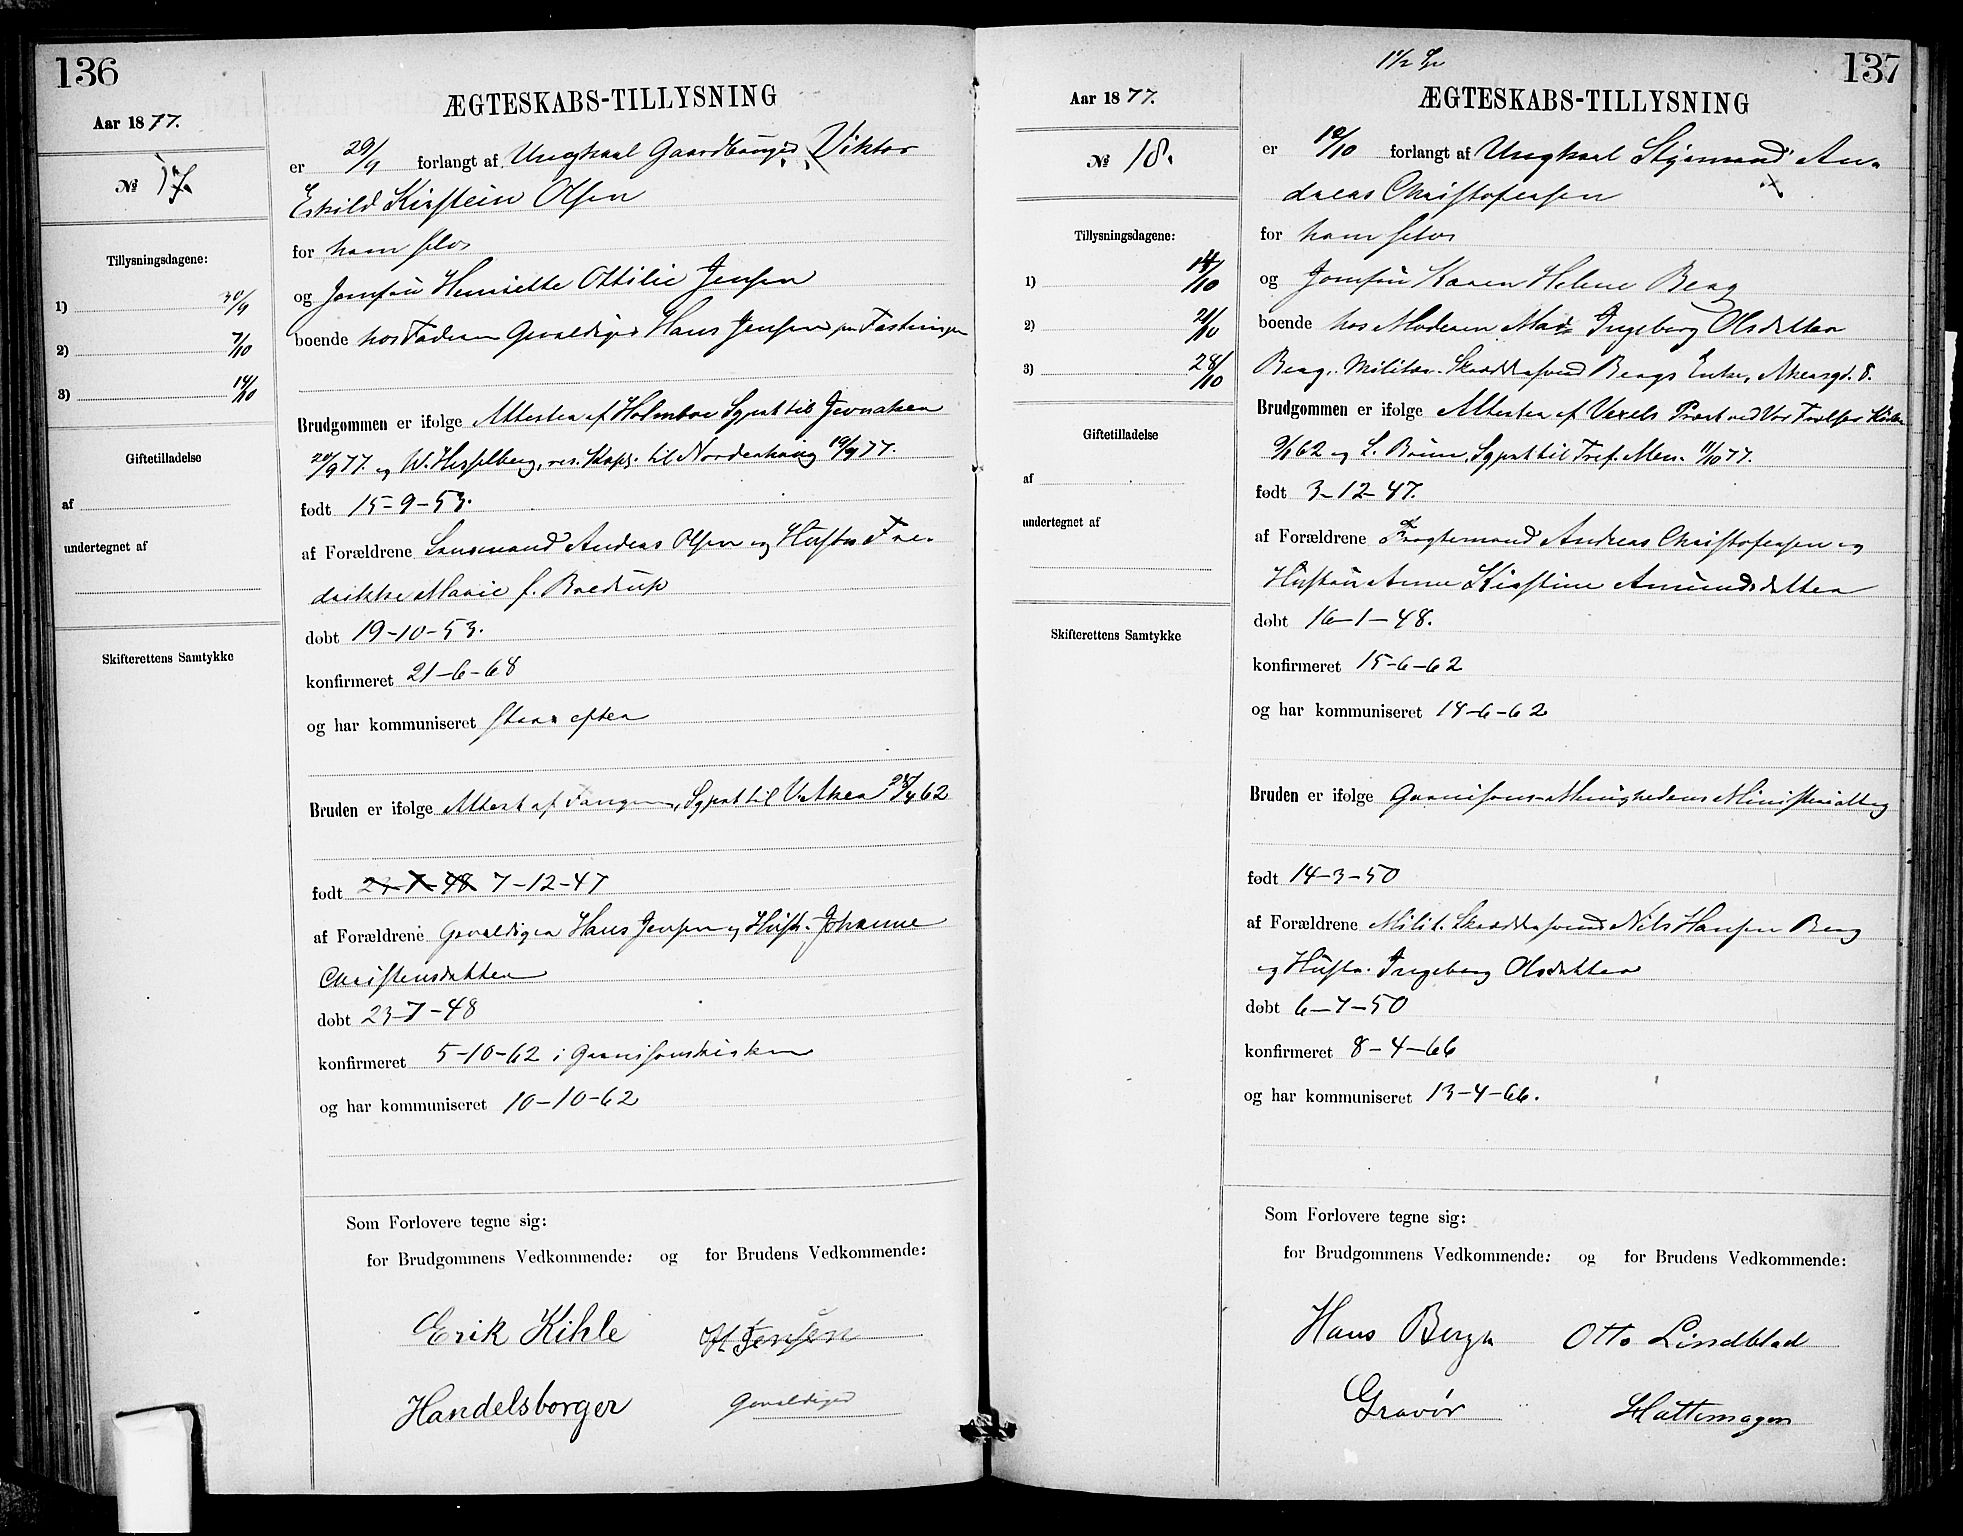 136
Aar 1877.
№ 17.
Tillysningsdagene:
1) 30/9
2) 7/10
3) 14/10
Giftetilladelse
af
undertegnet af
Skifterettens Samtykke
ÆGTESKABS-TILLYSNING
er 29/9 forlangt af Ungkarl Gaardbruger Viktor
Eskild Kirstein Olsen
for ham selv
og Jomfru Henriette Ottilie Jensen
boende hos Faderen Gevaldiger Hans Jensen paa Fæstningen
Brudgommen er ifølge Attester af Holmboe Sgprst til Jevnaker
20/9 77. og W. Hesselberg, res. Kap. til Norderhoug 19/9 77.
født 15-9-53.
af Forældrene Lensmand Andreas Olsen og Hustru Fre-
drikke Marie f. Bredrup
døbt 19-10-53.
konfirmeret 21-6-68
og har kommuniseret strax efter
Bruden er ifølge Attest af Fangen, Sgprst til V. Aker 28/4 62
født 23-7-48 7-12-47
af Forældrene Gevaldiger Hans Jensen og Hustr. Johanne
Christensdatter
døbt 23-7-48
konfirmeret 5-10-62 i Garnisonskirken
og har kommuniseret 10-10-62
Som Forlovere tegne sig:
for Brudgommens Vedkommende: og for Brudens Vedkommende:
Erik Kihle H Jensen
Handelsborger Gevaldiger
137
Aar 1877.
№ 18.
Tillysningsdagene:
1) 14/10
2) 21/10
3) 28/10
Giftetilladelse
af
undertegnet af
Skifterettens Samtykke
1 1/2 Sp
ÆGTESKABS-TILLYSNING
er 12/10 forlangt af Ungkarl Styrmand An-
dreas Christofersen
for ham selv
og Jomfru Karen Helene Berg
boende hos Moderen Mad. Ingeborg Olsdatter
Berg, Militær-Skræddersvend Bergs Enke, Akersgd. 8.
Brudgommen er ifølge Attester af Vexels Præst ved Vor Frelsers Kirke
9/6 62 og L. Bruun, Sgprst til Tref. Men. 11/10 77.
født 3-12-47.
af Forældrene Fragtemand Andreas Christofersen og
Hustru Anne Kirstine Amundsdatter
døbt 16-1-48.
konfirmeret 15-6-62
og har kommuniseret 18-6-62
Bruden er ifølge Garnisons-Menighedens Ministerialbog
født 14-3-50
af Forældrene Milit. Skræddersvend Nils Hansen Berg
og Hustr. Ingeborg Olsdatter
døbt 6-7-50
konfirmeret 8-4-66
og har kommuniseret 13-4-66.
Som Forlovere tegne sig:
for Brudgommens Vedkommende: og for Brudens Vedkommende:
Hans Bergh Otto Lindblad
Gravør Hattemager